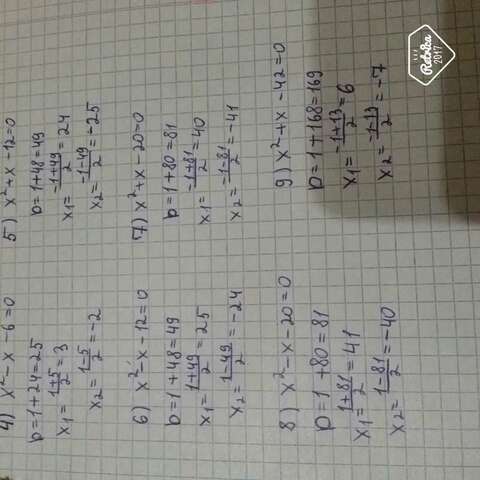 4) x² - x - 6 = 0
D = 1 + 24 = 25
x₁ = (1+5)/2 = 3
x₂ = (1-5)/2 = -2
5) x² + x - 12 = 0
D = 1 + 48 = 49
x₁ = (-1+49)/2 = 24
x₂ = (-1-49)/2 = -25
6) x² - x - 12 = 0
D = 1 + 48 = 49
x₁ = (1+49)/2 = 25
x₂ = (1-49)/2 = -24
7) x² + x - 20 = 0
D = 1 + 80 = 81
x₁ = (-1+81)/2 = 40
x₂ = (-1-81)/2 = -41
8) x² - x - 20 = 0
D = 1 + 80 = 81
x₁ = (1+81)/2 = 41
x₂ = (1-81)/2 = -40
9) x² + x - 42 = 0
D = 1 + 168 = 169
x₁ = (-1+13)/2 = 6
x₂ = (-1-13)/2 = -7
Retrica
2017